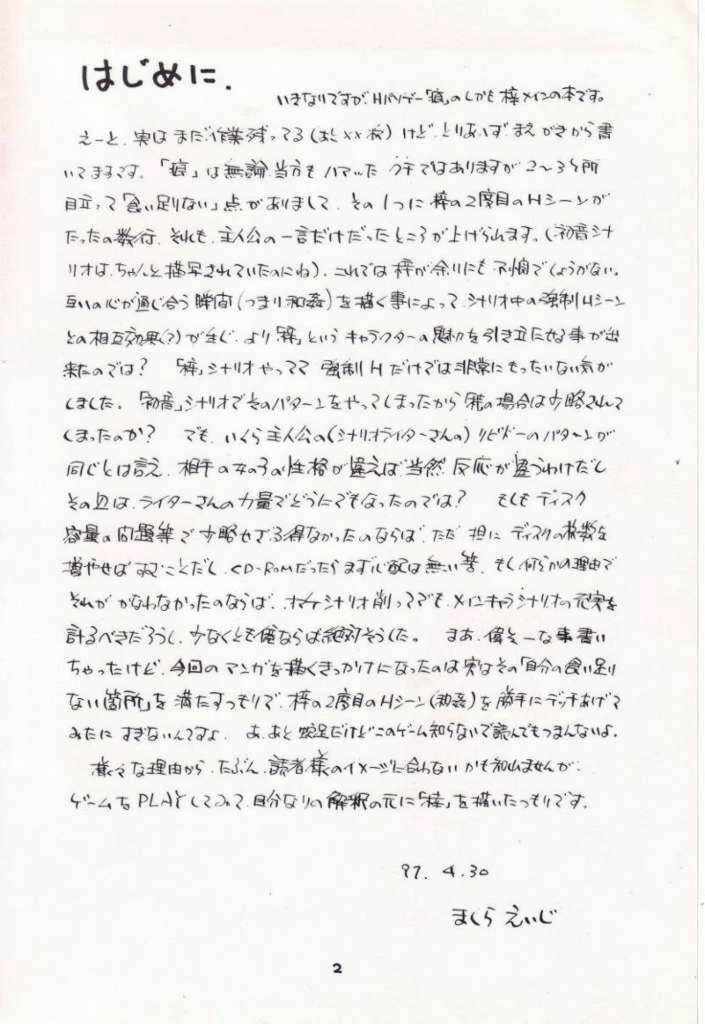 はじめに.
いきなりですが、Hパソゲー「痕」のしかも 梓メインの本です。
えーと、実は まだ作業残ってる(あと××枚)けど、とりあえず まえがきから書
いてますです。「痕」は無論、当方も ハマったクチではありますが 2〜3ヶ所
目立って「食い足りない」点がありまして、その1つに 梓の2度目のHシーンが
たったの数行、それも、主人公の一言だけだったところが上げられます。(初音シナ
リオは、ちゃんと描写されていたのにね)、これでは梓が余りにも 不憫でしょうがない。
互いの心が通じ合う瞬間(つまり和姦)を描く事によって、シナリオ中の強制Hシーン
との相互効果(?)が生じ、より「梓」というキャラクターの魅力を引き立たせる事が出
来たのでは? 「梓」シナリオやってて 強制Hだけでは非常にもったいない気が
しました。「初音」シナリオでそのパターンをやってしまったから 梓の場合は省略されて
しまったのか? でも、いくら主人公の(シナリオライターさんの)リビドーのパターンが
同じとは言え、相手の女の子の性格が違えば当然 反応が違うわけだし
その辺は、ライターさんの力量でどうにでもなったのでは? もしも ディスク
容量の問題等で 省略せざる得なかったのならば、ただ 担に ディスクの枚数を
増やせば すむことだし、CD-ROMだったら まず心配は無い筈、もし何らかの理由で
それが かなわなかったのならば、オマケシナリオ削ってでも、メインキャラシナリオの充実を
計るべきだろうし、少なくとも俺ならば絶対そうした。 まあ、偉そーな事書い
ちゃったけど、今回の マンガを描くきっかけになったのは 実はその「自分の食い足り
ない箇所」を 満たすつもりで、梓の2度目のHシーン(和姦)を 勝手にデッチあげて
みたに すぎないんですよ、あ、あと 蛇足だけどこのゲーム知らないで読んでもつまんないよ。
様々な理由から、たぶん、読者様のイメージに合わない かも知れませんが、
ゲームをPLAYしてみて、自分なりの解釈の元に「梓」を描いたつもりです。
97. 4.30
まくら えいじ
2